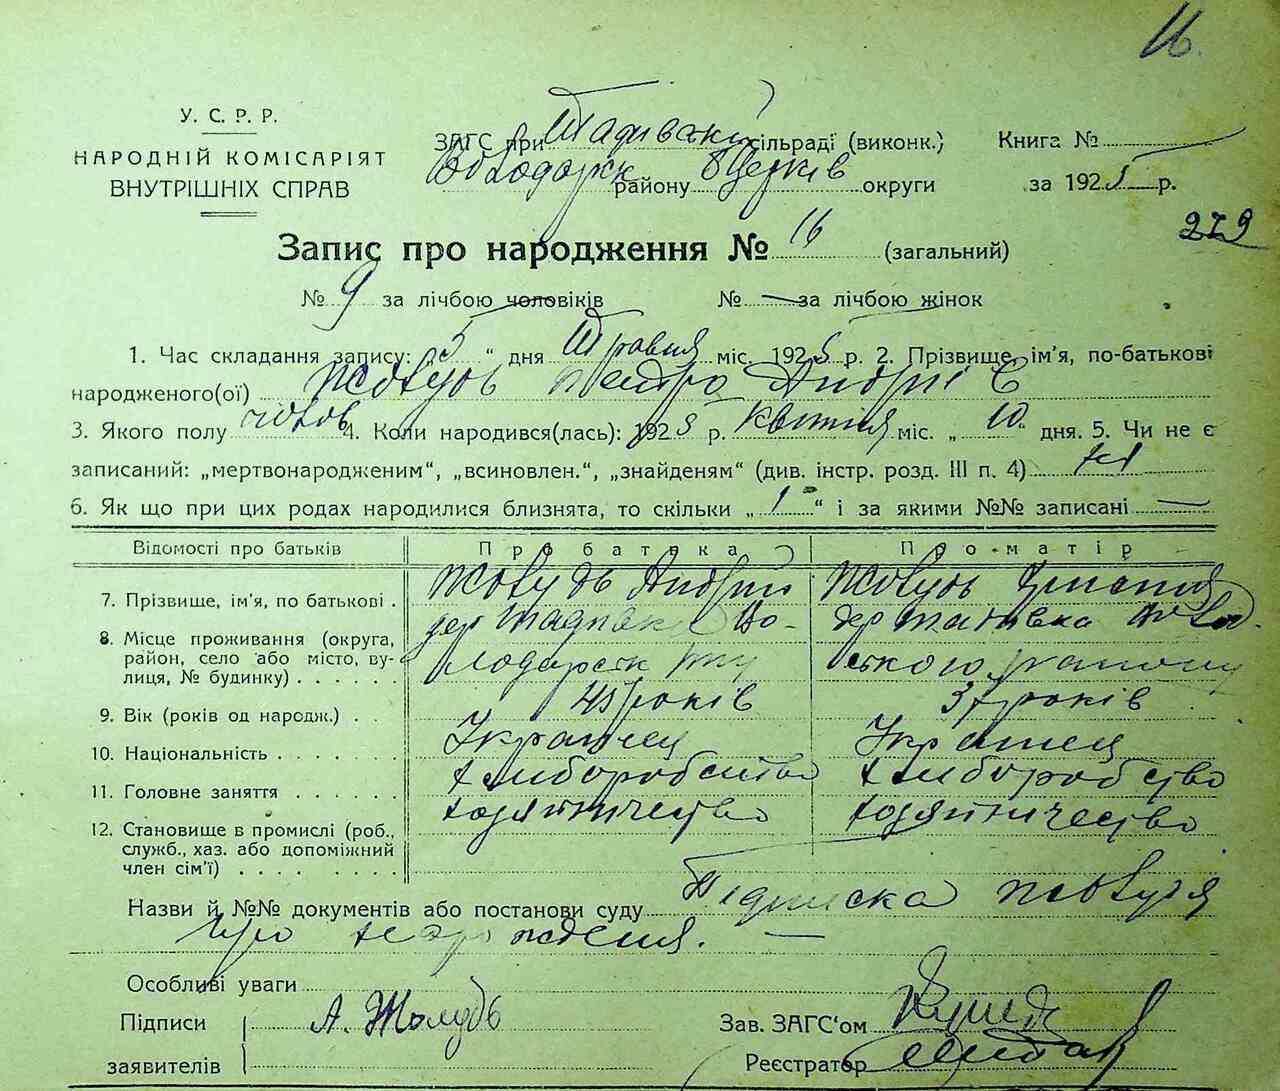 16.
У. С. Р. Р.
НАРОДНІЙ КОМІСАРІЯТ
ВНУТРІШНІХ СПРАВ
ЗАГС при сільраді (виконк.)
Володарськ району БЦерків округи
Книга №
за 1925 р.
279
Запис про народження № 16 (загальний)
№ 9 за лічбою чоловіків № — за лічбою жінок
1. Час складання запису: 5 “ дня Травня міс. 1925 р. 2. Прізвище, ім’я, по-батькові
народженого(ої) Жолудь Петро Андріє
3. Якого полу чолов 4. Коли народився(лась): 1925 р. квітня міс. „ 10 “ дня. 5. Чи не є
записаний: „мертвонародженим“, „всиновлен.“, „знайденям“ (див. інстр. розд. III п. 4) ні
6. Як що при цих родах народилися близнята, то скільки „ 1 “ і за якими №№ записані —
Відомості про батьків
Про батька
Про матір
7. Прізвище, ім’я, по батькові .
Жолудь Андрій
Жолудь
8. Місце проживання (округа,
район, село або місто, ву-
лиця, № будинку) . . . . . .
Во-
лодарськ
ського району
9. Вік (років од народж.) . .
45 років
37 років
10. Національність . . . . . . .
Українец
Українец
11. Головне заняття . . . . . .
хліборобство
хліборобство
12. Становище в промислі (роб.,
служб., хаз. або допоміжний
член сім’ї) . . . . . . . .
хозяйничество
хозяйничество
Назви й №№ документів або постанови суду Підписка Жолудя
про нарождения. —
Особливі уваги
Підписи
заявителів
А. Жолудь
Зав. ЗАГС‘ом
Реєстратор